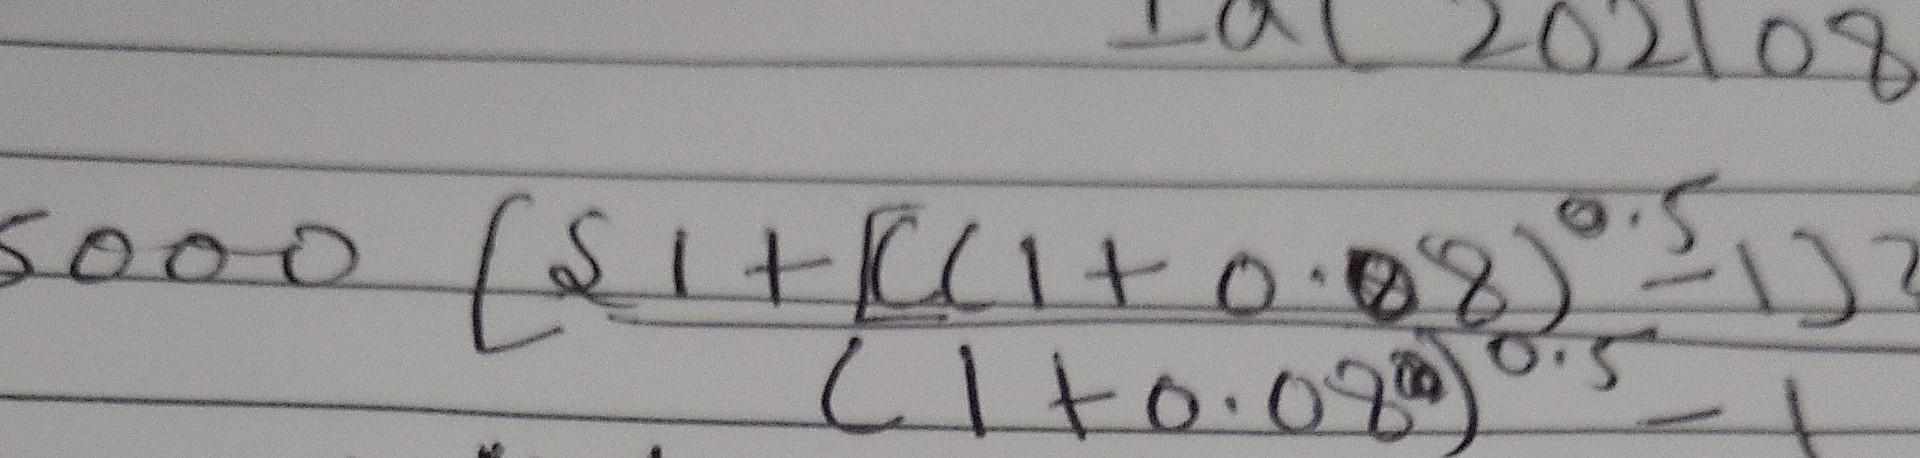 202108
5000 [{1+[((1+0.08)^0.5 -1)}
(1+0.08)^0.5 - 1